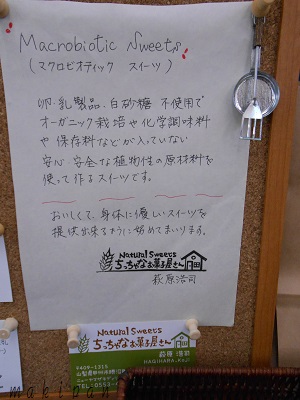 Macrobiotic Sweets
(マクロビオティック スイーツ)
卵、乳製品、白砂糖 不使用で
オーガニック栽培や化学調味料
や保存料などが入っていない
安心 安全な植物性の原材料を
使って作るスイーツです。
おいしくて、身体に優しいスイーツを
提供出来るように始めてまいります。
Natural Sweets
ちっちゃなお菓子屋さん
萩原浩司
Natural Sweets
ちっちゃなお菓子屋さん
萩原
HAGIHARA
〒409-1315
TEL:0553